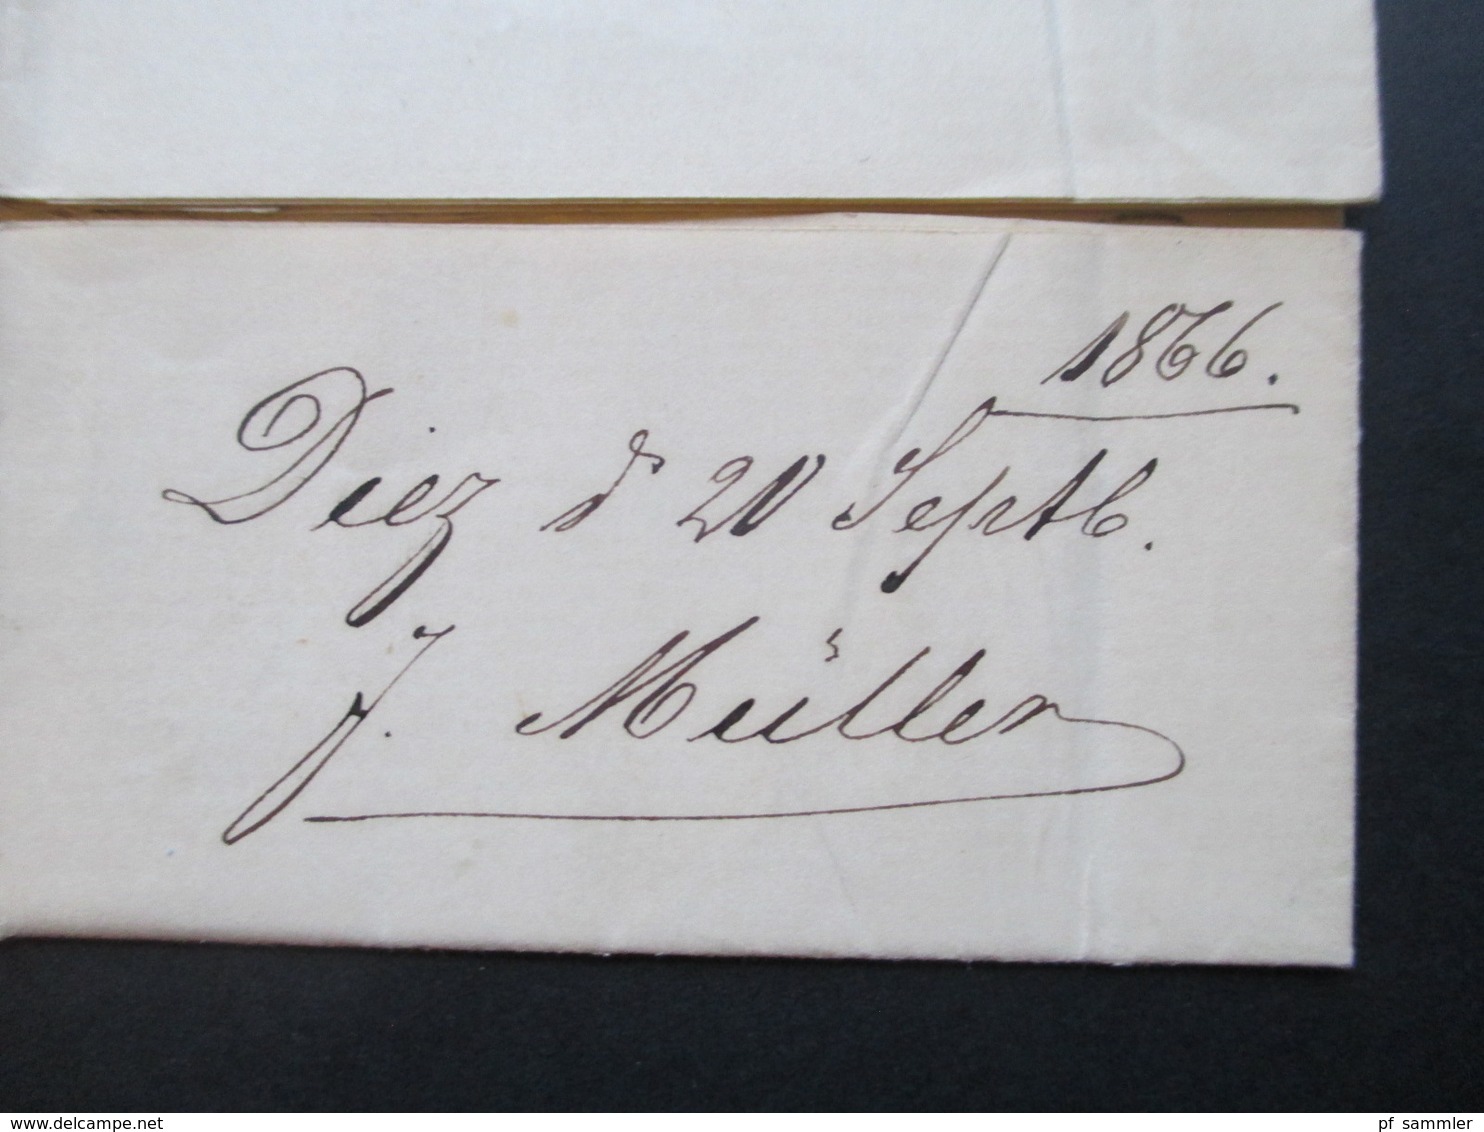 1866.
Diez d 20 Septb.
J. Müller
www.delcampe.net
pf_sammler